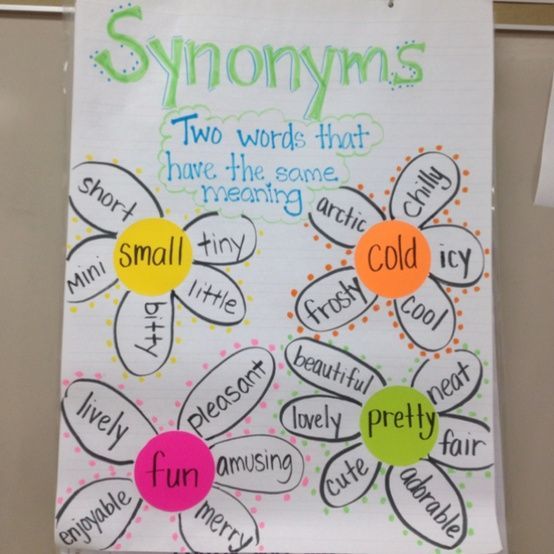 Synonyms
Two words that
have the same
meaning
small
short
tiny
little
bitty
Mini
cold
arctic
chilly
icy
cool
frosty
fun
lively
pleasant
amusing
merry
enjoyable
pretty
beautiful
neat
fair
adorable
cute
lovely